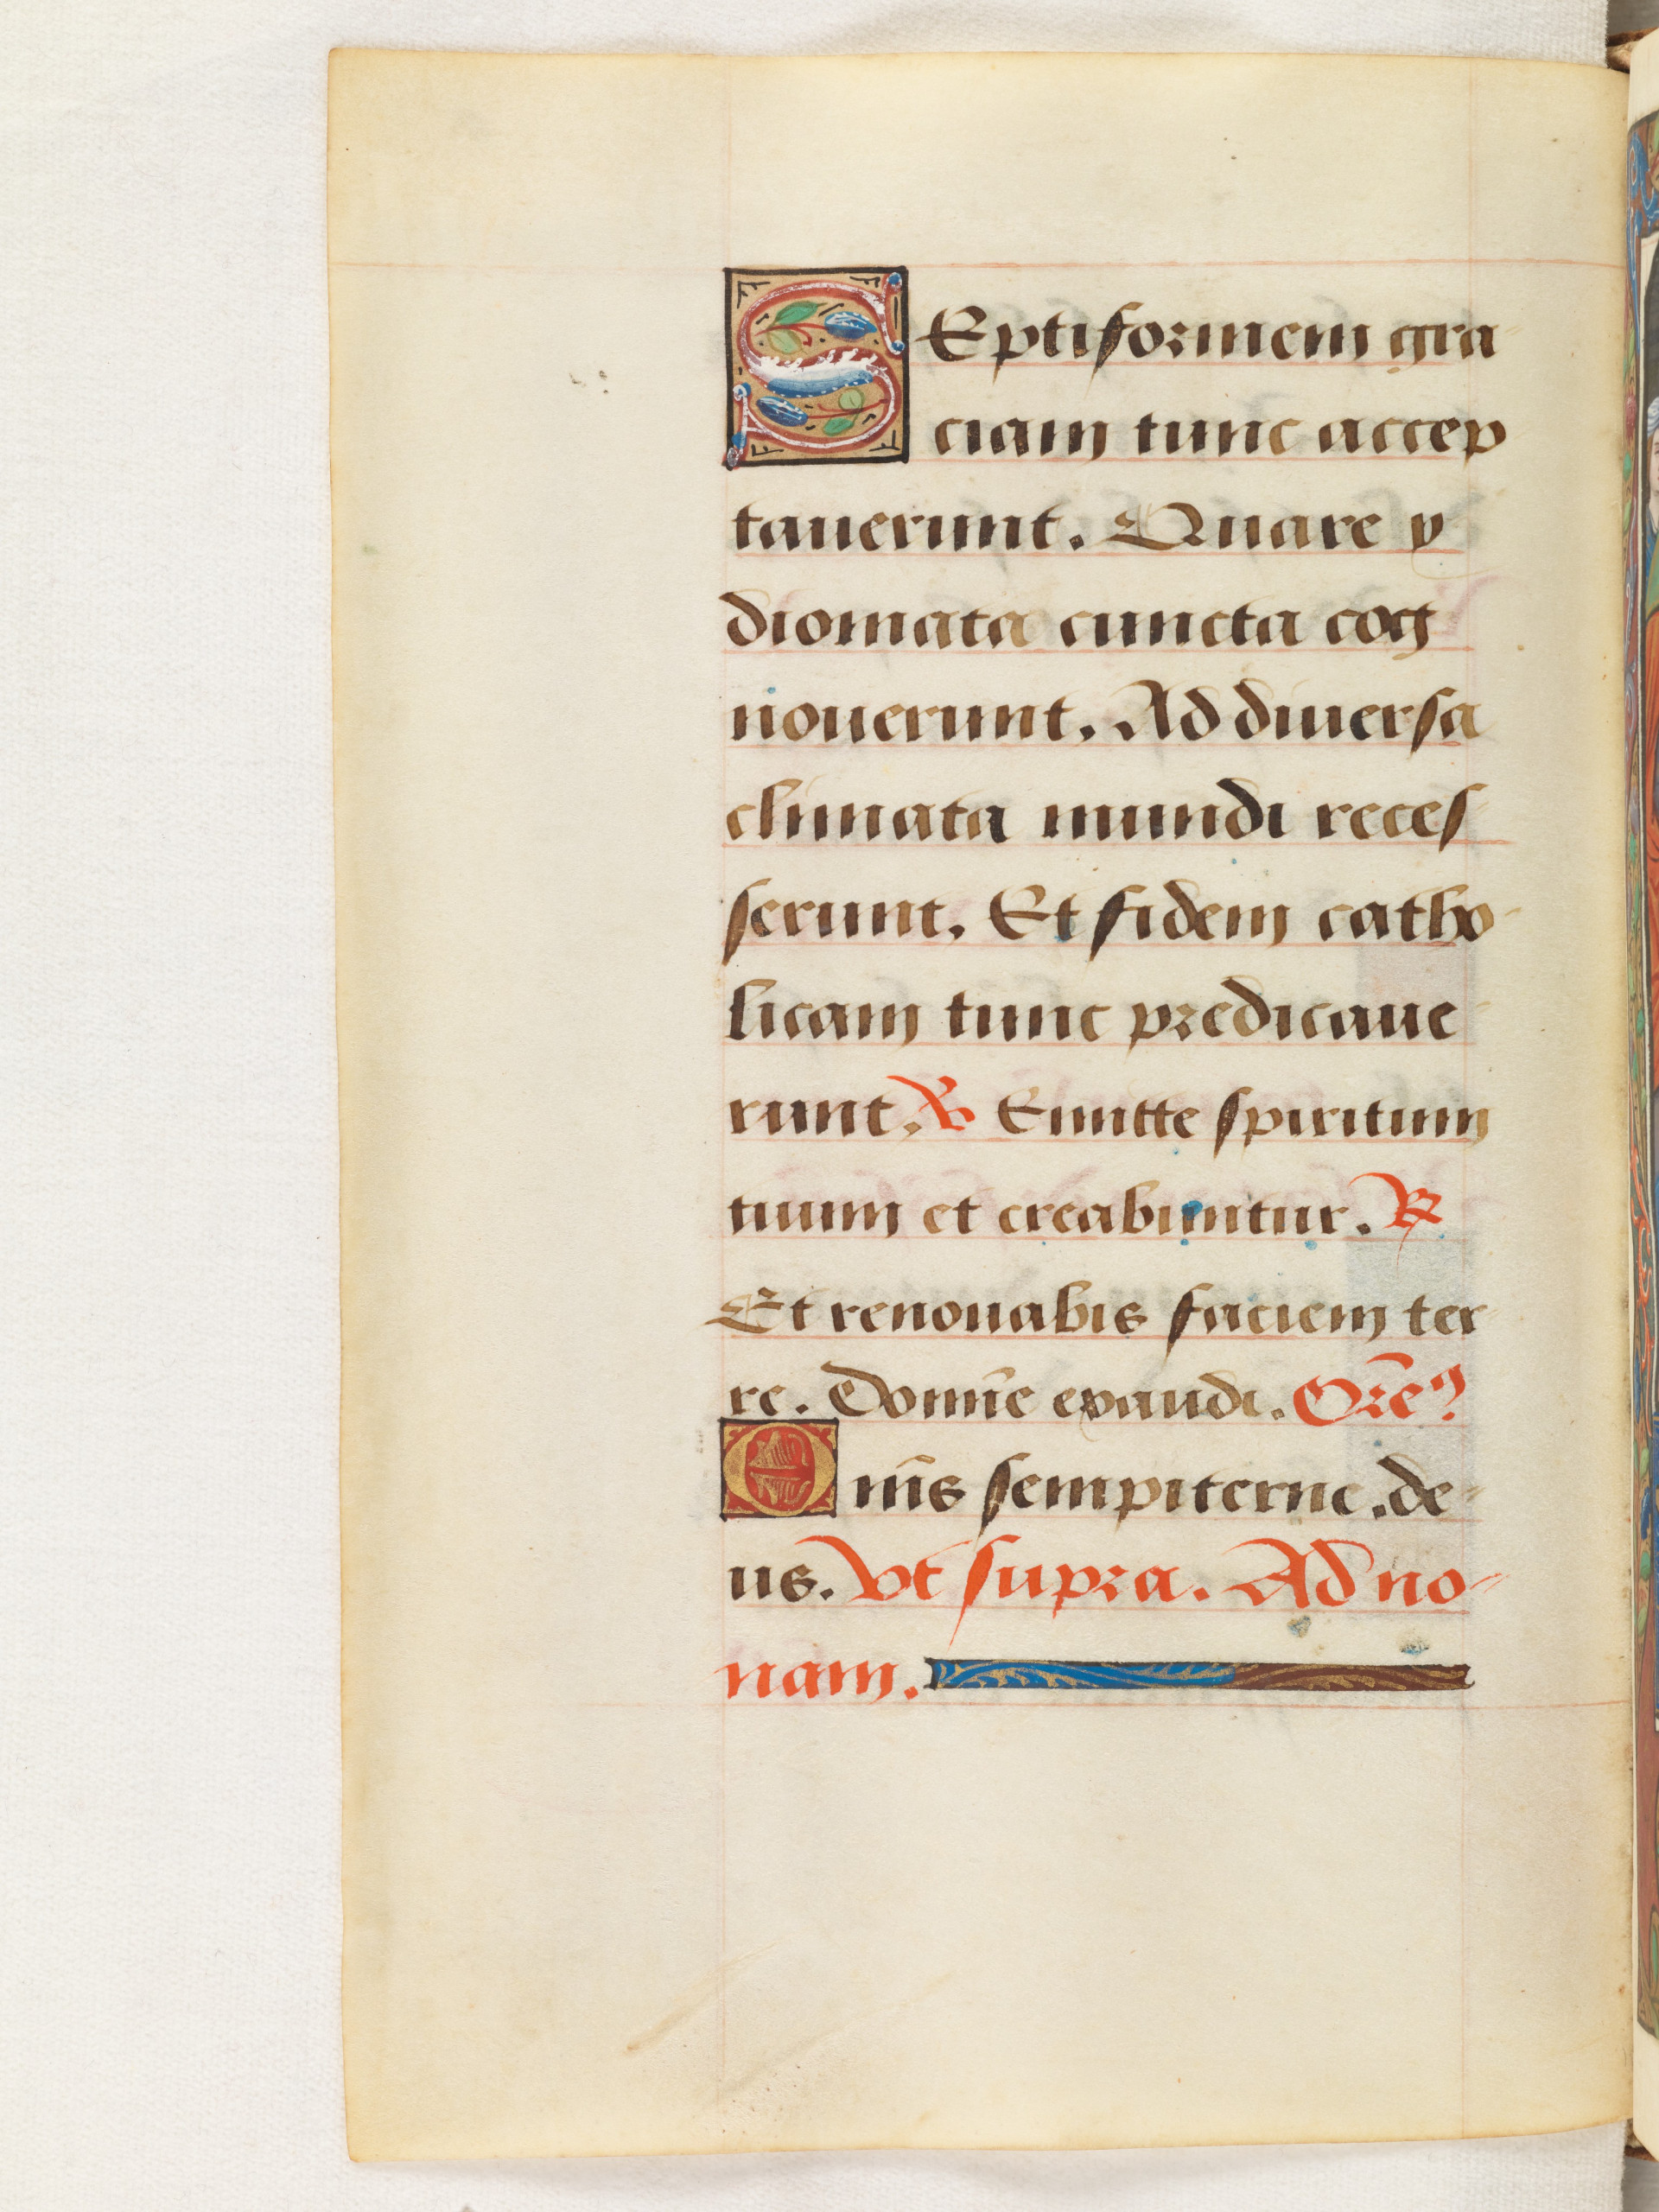 SEptiformem gra-
ciam tunc accep
tauerunt. Quare y
diomata cuncta cog
nouerunt. Ad diuersa
climata mundi reces-
serunt. Et fidem catho-
licam tunc predicaue-
runt. ℣ Emitte spiritum
tuum et creabuntur. ℟
Et renouabis faciem ter-
re. Domīe exaudi. Orēꝰ
Om̄s sempiterne. de-
us. Vt supra. Ad no-
nam.